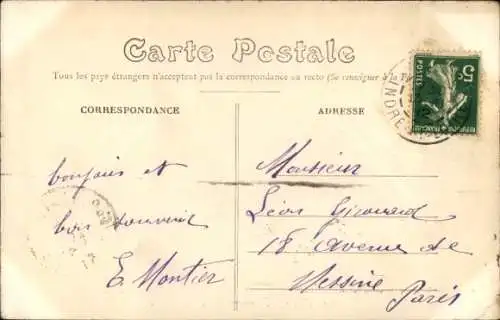 Carte Postale
Tous les pays étrangers n'acceptent pas la correspondance au recto (Se renseigner à la
CORRESPONDANCE
ADRESSE
5c
POSTES
REPUBLIQUE FRANCAISE
INDRE
bonjours et
bon souvenir
E. Montier
Monsieur
Léon Girouard
18 Avenue de
Messine Paris